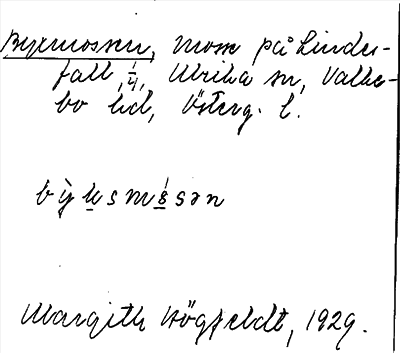 Byxmossen, mosse på Linde-
fall, 1/4, Ulrika sn, Valke-
bo hd, Österg. l.
bỳksmo̍s sən
Margith Högfeldt, 1929.